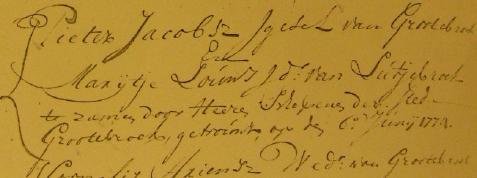 Pieter Jacobsz Jgesel van Grootebroek
En
Marijtje Louws J.d. van Lutjebroek
te zamen door Heere Schepenen der Stede
Grootebroek, getrouwt, op den 6e Junij 1773.
Cornelis Ariensz Wedr. van Grootebroek